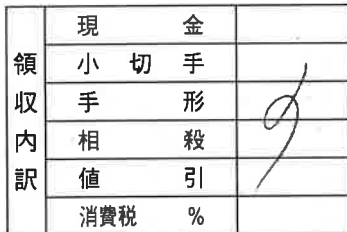 領収内訳
現金
小切手
手形
相殺
値引
消費税 %